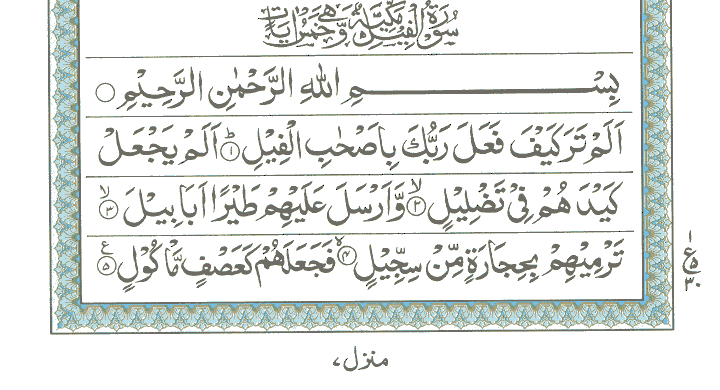 سُوْرَةُ الْفِيْلِ مَكِّيَّةٌ وَّهِيَ خَمْسُ اٰيَاتٍ
بِسْمِ اللّٰهِ الرَّحْمٰنِ الرَّحِيْمِ ○
اَلَمْ تَرَ كَيْفَ فَعَلَ رَبُّكَ بِاَصْحٰبِ الْفِيْلِ ؕ﴿۱﴾ اَلَمْ يَجْعَلْ
كَيْدَهُمْ فِيْ تَضْلِيْلٍ ۙ﴿۲﴾ وَّاَرْسَلَ عَلَيْهِمْ طَيْرًا اَبَابِيْلَ ۙ﴿۳﴾
تَرْمِيْهِمْ بِحِجَارَةٍ مِّنْ سِجِّيْلٍ ۪ۙ﴿۴﴾ فَجَعَلَهُمْ كَعَصْفٍ مَّاْكُوْلٍ ﴿۵﴾ ع
۱
ع ۵
۳۰
منزل،